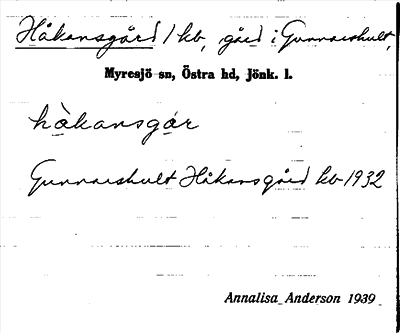 Håkansgård 1 kb, gård i Gunnarshult,
Myresjö sn, Östra hd, Jönk. l.
hàkansgạr
Gunnarshult Håkansgård kb 1932
Annalisa Anderson 1939